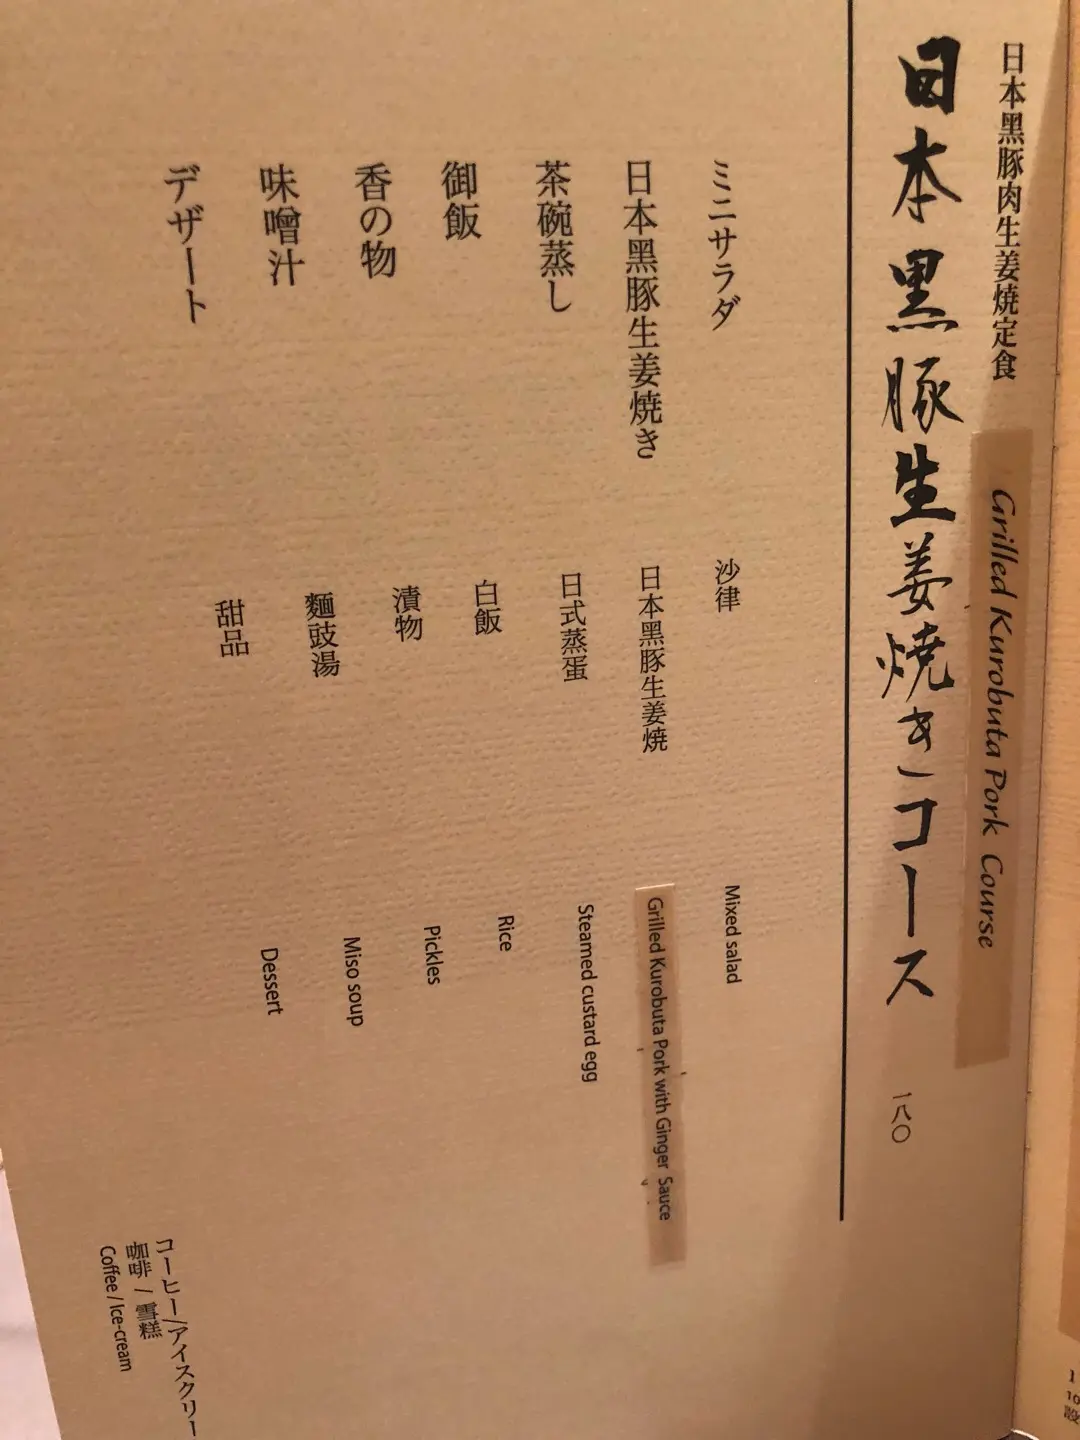 日本黑豚肉生姜焼定食
Grilled Kurobuta Pork Course
日本黒豚生姜焼きコース 一八〇
ミニサラダ
沙律
Mixed salad
日本黒豚生姜焼き
日本黑豚生姜焼
Grilled Kurobuta Pork with Ginger Sauce
茶碗蒸し
日式蒸蛋
Steamed custard egg
御飯
白飯
Rice
香の物
漬物
Pickles
味噌汁
麵豉湯
Miso soup
デザート
甜品
Dessert
コーヒー/アイスクリー
咖啡 / 雪糕
Coffee / Ice-cream
1
10
設